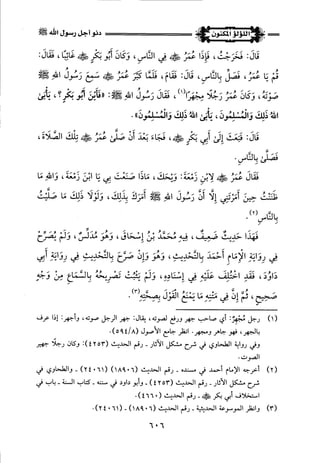 اللؤلؤ المكنون
دنو أجل رسول الله ﷺ
قَالَ: فَخَرَجْتُ، فَإِذَا عُمَرُ ﷺ فِي النَّاسِ، وَكَانَ أَبُو بَكْرٍ ﷺ غَائِبًا، فَقَالَ:
قُمْ يَا عُمَرُ، فَصَلِّ بِالنَّاسِ، قَالَ: فَقَامَ، فَلَمَّا كَبَّرَ عُمَرُ ﷺ سَمِعَ رَسُولُ اللهِ ﷺ
صَوْتَهُ، وَكَانَ عُمَرُ رَجُلًا مِجْهَرًا(١)، قَالَ: فَقَالَ رَسُولُ اللهِ ﷺ: «فَأَيْنَ أَبُو بَكْرٍ؟، يَأْبَى
اللهُ ذَلِكَ وَالْمُسْلِمُونَ، يَأْبَى اللهُ ذَلِكَ وَالْمُسْلِمُونَ».
قَالَ: فَبَعَثَ إِلَى أَبِي بَكْرٍ ﷺ، فَجَاءَ بَعْدَ أَنْ صَلَّى عُمَرُ ﷺ تِلْكَ الصَّلَاةَ،
فَصَلَّى بِالنَّاسِ.
فَقَالَ عُمَرُ ﷺ لِابْنِ زَمْعَةَ: وَيْحَكَ، مَاذَا صَنَعْتَ بِي يَا ابْنَ زَمْعَةَ، وَاللهِ مَا
ظَنَنْتُ حِينَ أَمَرْتَنِي إِلَّا أَنَّ رَسُولَ اللهِ ﷺ أَمَرَكَ بِذَلِكَ، وَلَوْلَا ذَلِكَ مَا صَلَّيْتُ
بِالنَّاسِ(٢).
فَهَذَا حَدِيثٌ ضَعِيفٌ، فِيهِ مُحَمَّدُ بْنُ إِسْحَاقَ، وَهُوَ مُدَلِّسٌ، وَلَمْ يُصَرِّحْ
فِي رِوَايَةِ الْإِمَامِ أَحْمَدَ بِالتَّحْدِيثِ، وَهُوَ وَإِنْ صَرَّحَ بِالتَّحْدِيثِ فِي رِوَايَةِ أَبِي
دَاوُدَ، فَقَدِ اخْتُلِفَ عَلَيْهِ فِي إِسْنَادِهِ، وَلَمْ يَثْبُتْ تَصْرِيحُهُ بِالسَّمَاعِ مِنْ وَجْهٍ
صَحِيحٍ، ثُمَّ إِنَّ فِي مَتْنِهِ مَا يَمْنَعُ الْقَوْلَ بِصِحَّتِهِ(٣).
(١) رجل مُجْهِرٌ: أي صاحب جهر ورفع لصوته، يقال: جهر الرجل صوته، وأجهر: إذا عرف
بالجهر، فهو جاهر ومجهر. انظر جامع الأصول (٥٩٤/٨)
وفي رواية الطحاوي في شرح مشكل الآثار - رقم الحديث (٤٢٥٣): وكان رجلًا جهير
الصوت.
(٢) أخرجه الإمام أحمد في مسنده - رقم الحديث (١٨٩٠٦) (٢٤٠٦١) - والطحاوي في
شرح مشكل الآثار - رقم الحديث (٤٢٥٣) - وأبو داود في سننه - كتاب السنة - باب في
استخلاف أبي بكر ﷺ - رقم الحديث (٤٦٦٠).
(٣) وانظر الموسوعة الحديثية - رقم الحديث (١٨٩٠٦) - (٢٤٠٦١).
٦٠٦